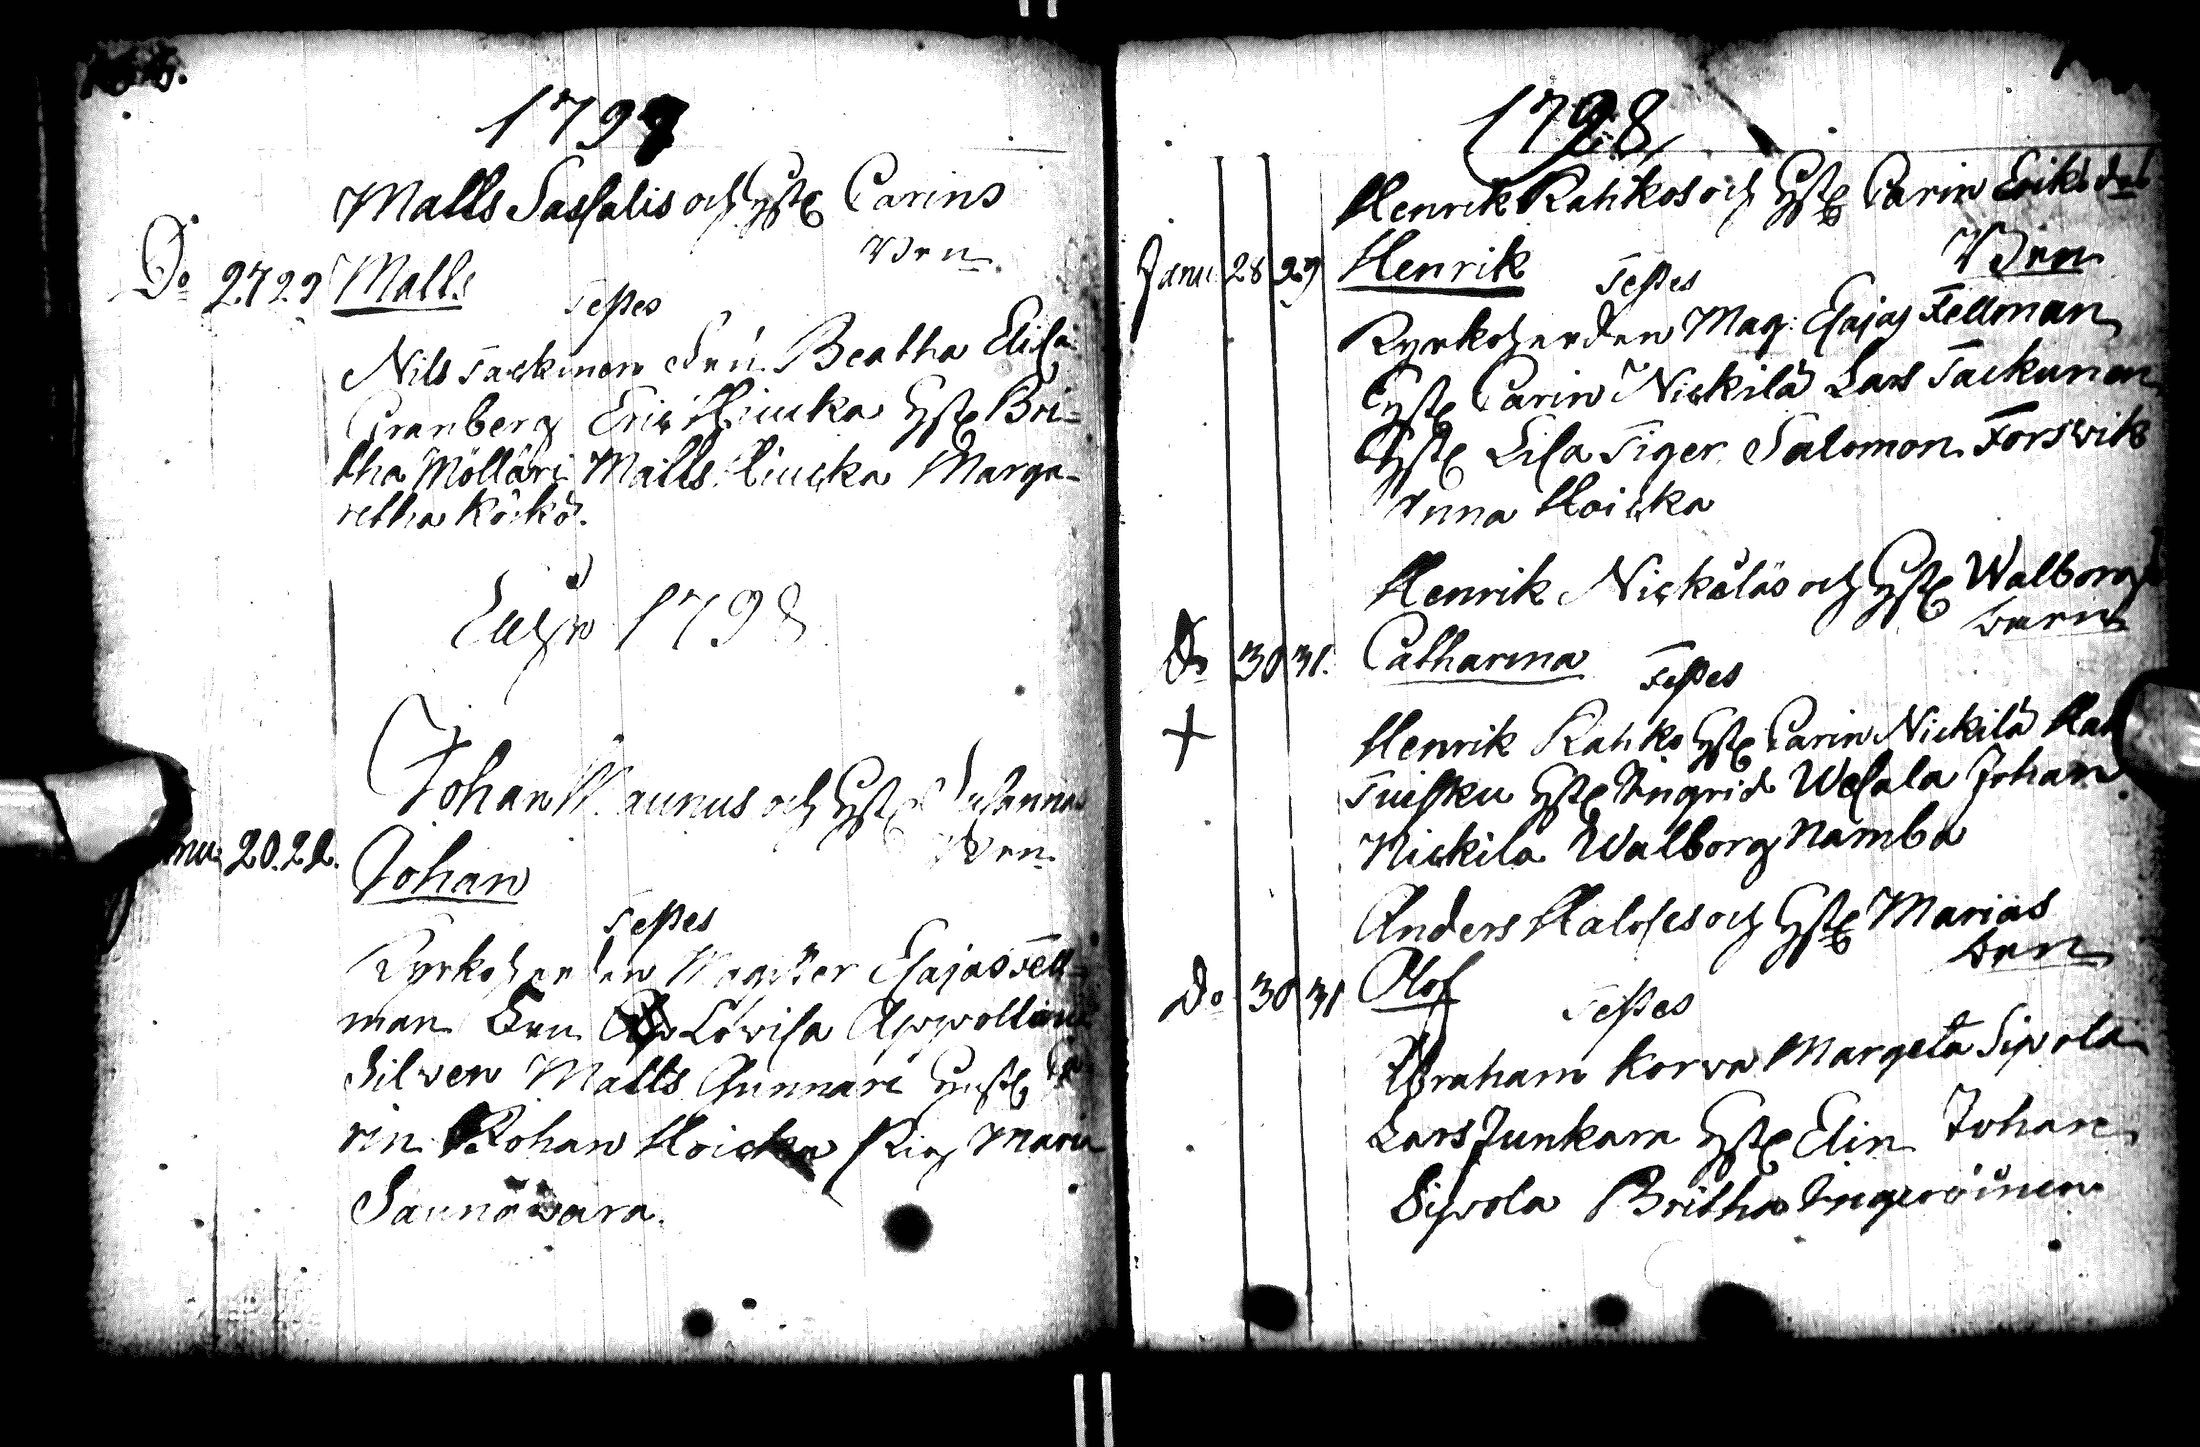 1797
Matts Sassalis och Hust. Carins
Barn
Do 27 29 Matts
Testes
Nils Tackinen Dru Beatha Elisa
Granberg Eric Hiucka Hust. Bri=
tha Möllari Matts Hiucka Marga=
retha Köckö.
1798
Johan Maunus och Hust. Susannas
Barn
20. 22. Johan
Testes
Kyrkoherden Magister Esajas Fell=
man Dru Lovisa Appollonia
Silven Matts Gunnari Hust.
rin Johan Hoicka Pig Maria
Saunawara.
1798
Henrik Rahkos och Hust. Carin Eriksd
Barn
Janu 28 29 Henrik
Testes
Kyrkoherden Mag: Esajas Fellman
Hust. Carin Nickilä Lars Tackunen
Hust. Lisa Tiger Salomon Forswik
Anna Hoicka
Henrik Nickiläs och Hust. Walborgs
barn
Do 30 31. Catharina
Testes
+ Henrik Rahko Hust. Carin Nickilä
Tuisku Hust. Ingrid Wesala Johan
Nickila Walborg Namba
Anders Haloses och Hust. Marias
barn
Do 30 31 Olof
Testes
Abraham Korva Margeta Sipola
Lars Junkara Hust. Elin Johan
Sipola Britha Ingeröinen